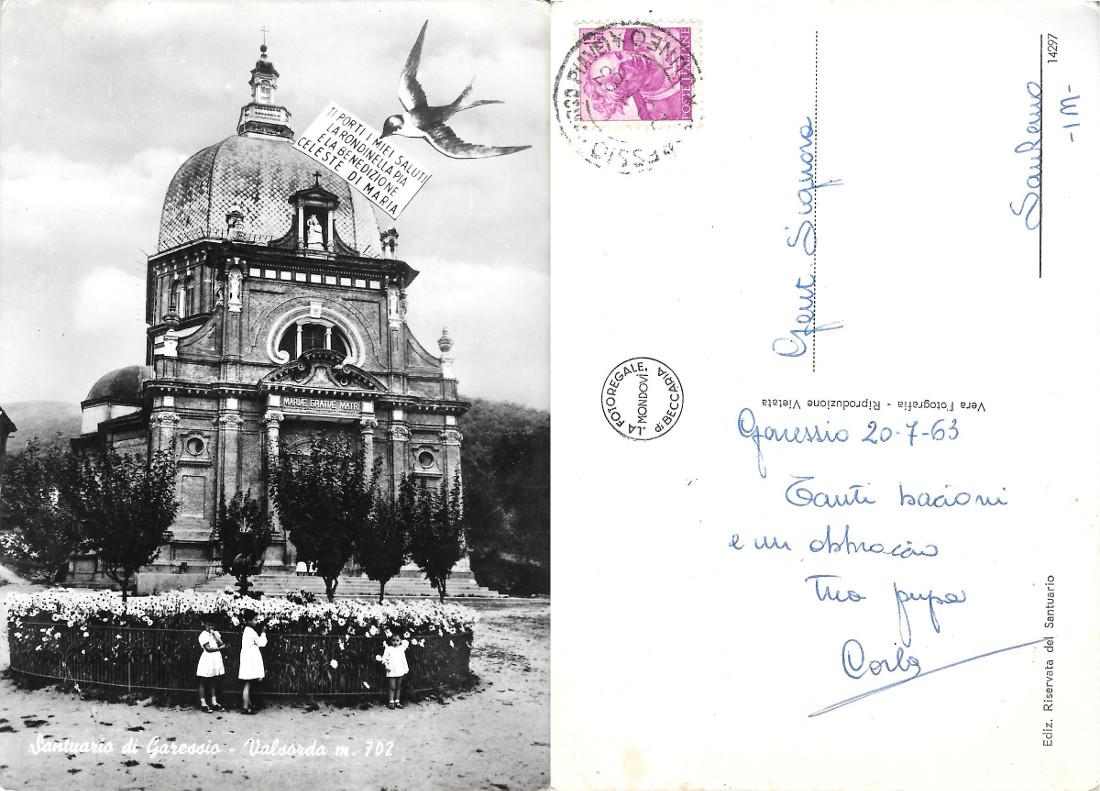 TI PORTI I MIEI SALUTI
LA RONDINELLA PIA
E LA BENEDIZIONE
CELESTE DI MARIA
MARIÆ GRATIÆ MATRI
Santuario di Garessio - Valsorda m. 702
POSTE ITALIANE
Gent. Signora
SanRemo
-IM-
14297
LA FOTOREGALE
MONDOVÌ
di BECCARIA
Vera Fotografia - Riproduzione Vietata
Garessio 20-7-63
Tanti bacioni
e un abbraccio
Tua pupa
Carla
Ediz. Riservata del Santuario